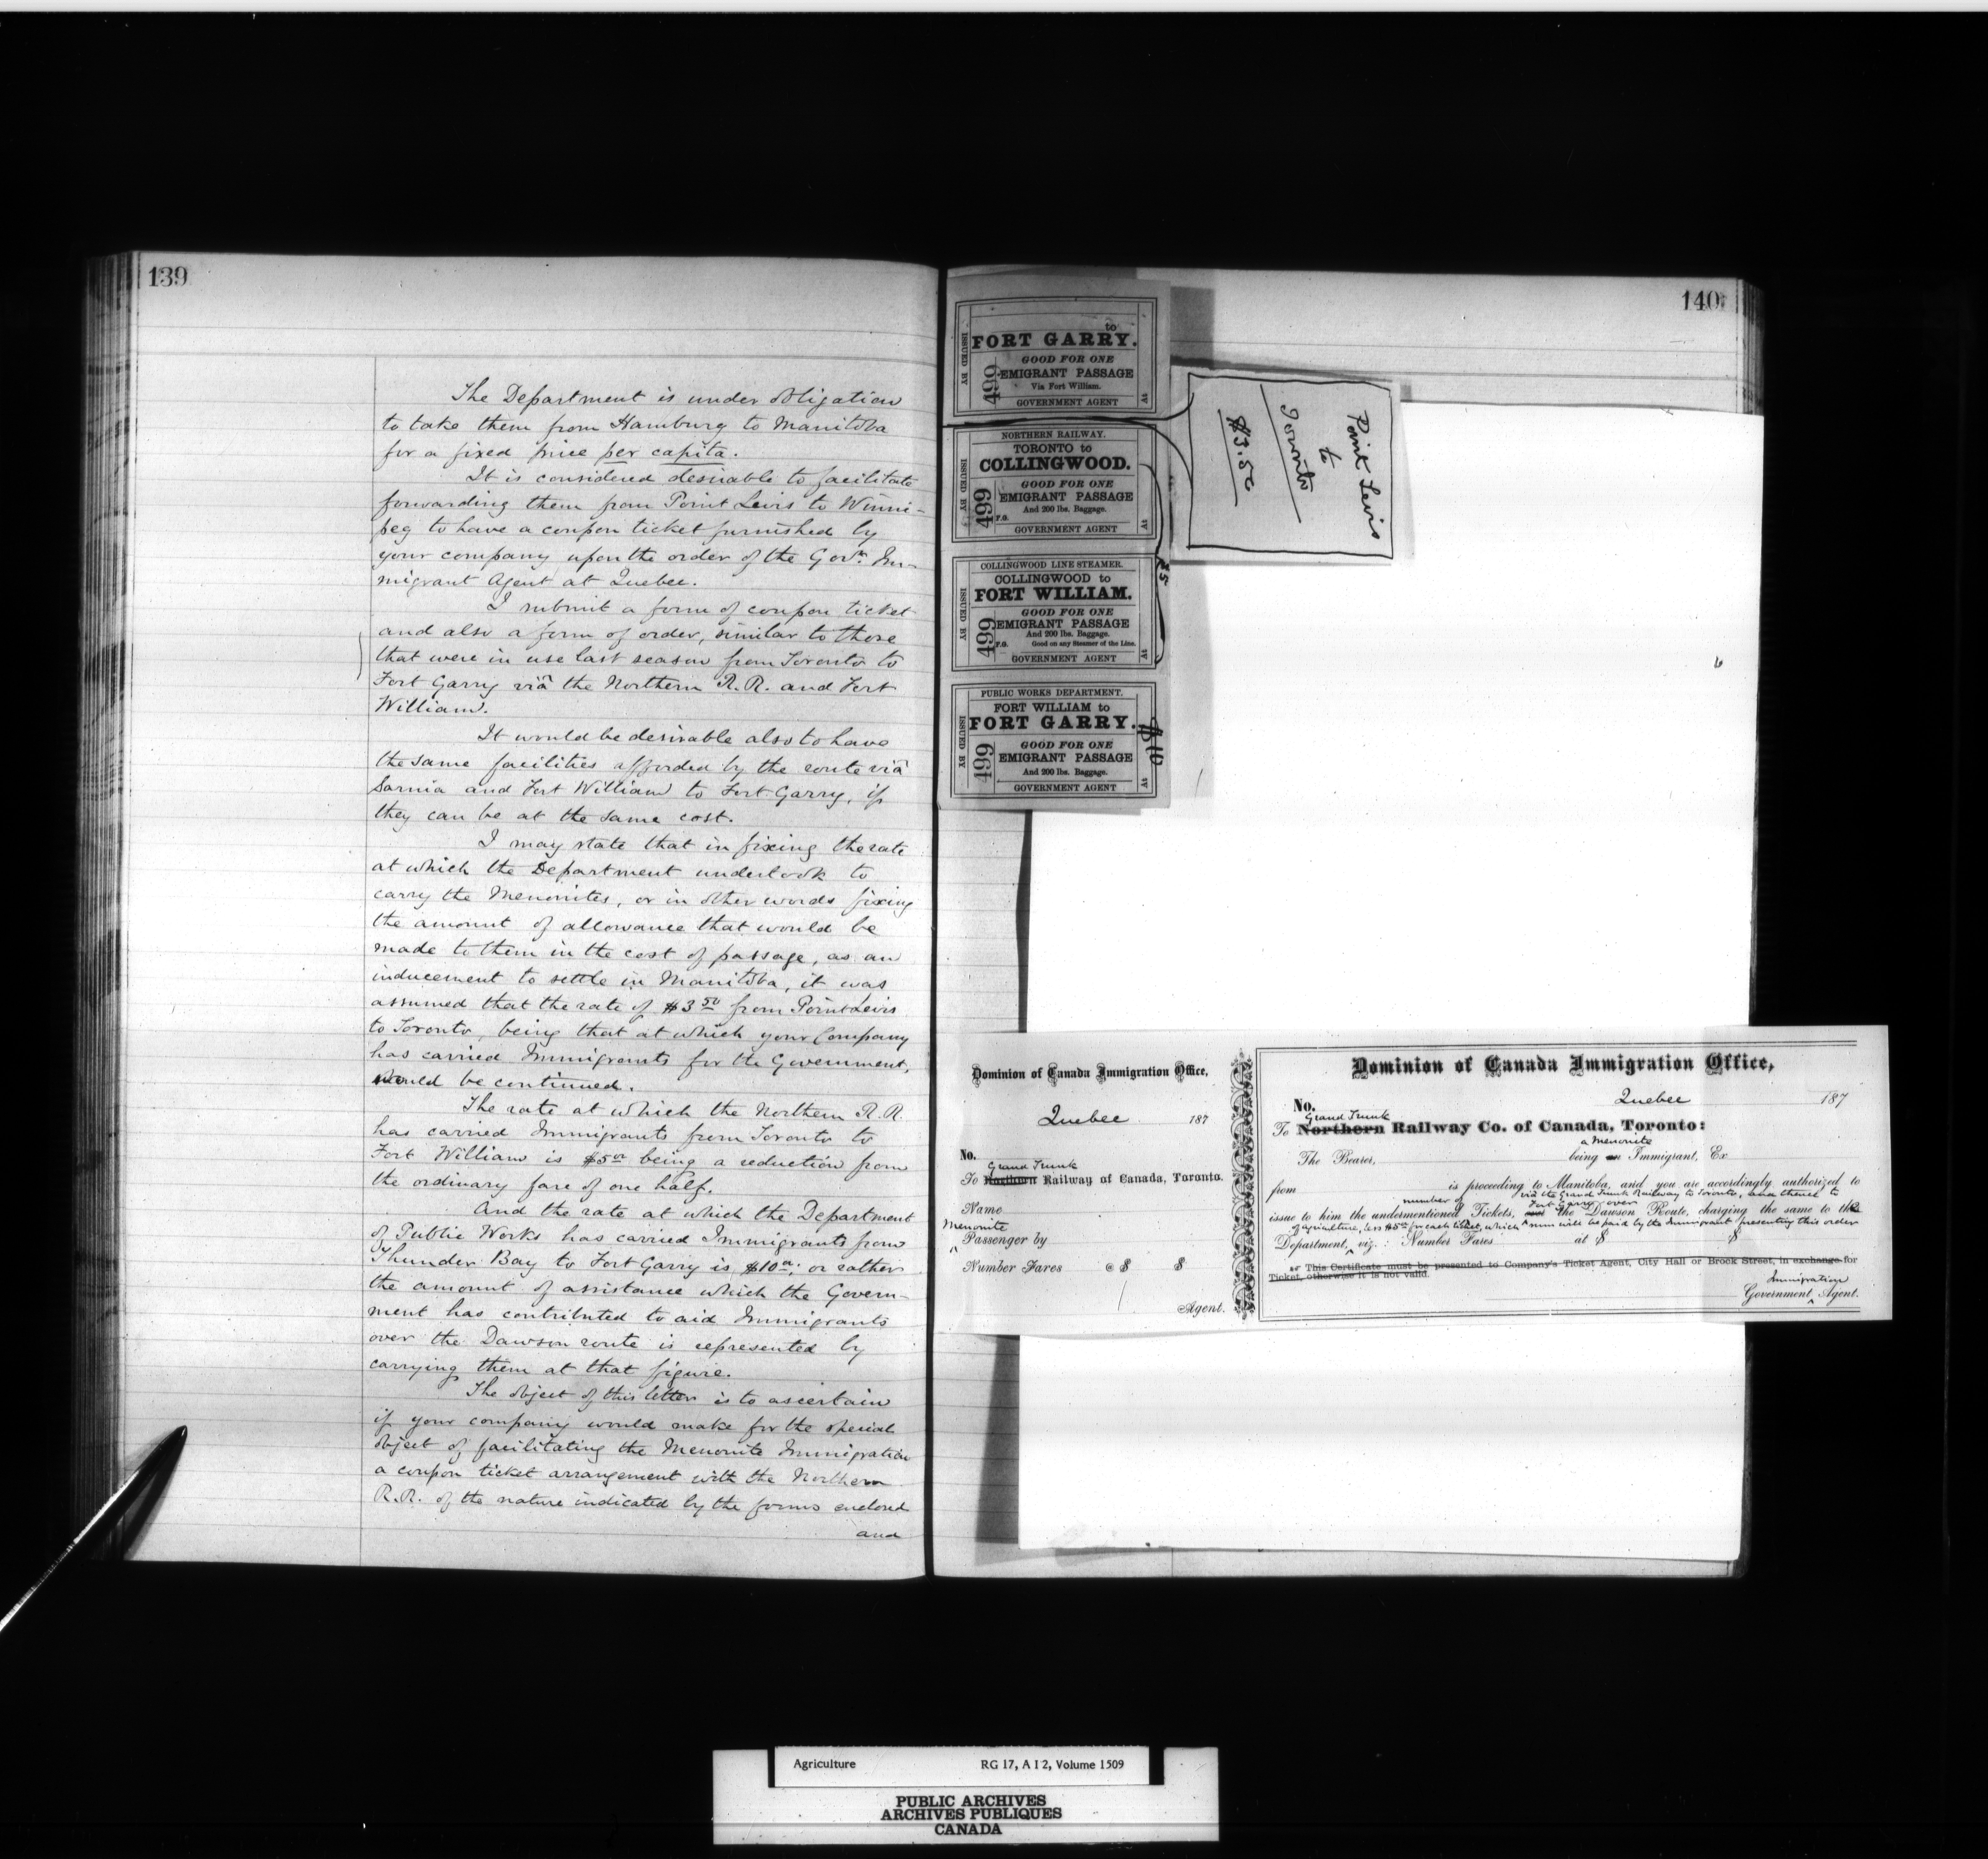 139
The Department is under obligation
to take them from Hamburg to Manitoba
for a fixed price per capita.
It is considered desirable to facilitate
forwarding them from Point Levis to Winni-
peg to have a coupon ticket furnished by
your company upon the order of the Govt. Im-
migrant Agent at Quebec.
I submit a form of coupon ticket
and also a form of order, similar to those
that were in use last season from Toronto to
Fort Garry viâ the Northern R.R. and Fort
William.
It would be desirable also to have
the same facilities afforded by the route viâ
Sarnia and Fort William to Fort Garry, if
they can be at the same cost.
I may state that in fixing the rate
at which the Department undertook to
carry the Menonites, or in other words fixing
the amount of allowance that would be
made to them in the cost of passage, as an
inducement to settle in Manitoba, it was
assumed that the rate of $3 50 from Point Levis
to Toronto, being that at which your Company
has carried Immigrants for the Government,
would be continued.
The rate at which the Northern R.R.
has carried Immigrants from Toronto to
Fort William is $5 00 being a reduction from
the ordinary fare of one half.
And the rate at which the Department
of Public Works has carried Immigrants from
Thunder Bay to Fort Garry is $10 00; or rather
the amount of assistance which the Govern-
ment has contributed to aid Immigrants
over the Dawson route is represented by
carrying them at that figure.
The object of this letter is to ascertain
if your company would make for the special
object of facilitating the Menonite Immigration
a coupon ticket arrangement with the Northern
R.R. of the nature indicated by the forms enclosed
and
140
to
FORT GARRY.
GOOD FOR ONE
EMIGRANT PASSAGE
Via Fort William.
GOVERNMENT AGENT
ISSUED BY
499
At
NORTHERN RAILWAY.
TORONTO to
COLLINGWOOD.
GOOD FOR ONE
EMIGRANT PASSAGE
And 200 lbs. Baggage.
F.G.
GOVERNMENT AGENT
ISSUED BY
499
At
COLLINGWOOD LINE STEAMER.
COLLINGWOOD to
FORT WILLIAM.
GOOD FOR ONE
EMIGRANT PASSAGE
And 200 lbs. Baggage.
F.G. Good on any Steamer of the Line.
GOVERNMENT AGENT
ISSUED BY
499
At
$5
PUBLIC WORKS DEPARTMENT.
FORT WILLIAM to
FORT GARRY.
GOOD FOR ONE
EMIGRANT PASSAGE
And 200 lbs. Baggage.
GOVERNMENT AGENT
ISSUED BY
499
At
$10
Point Levis
to
Toronto
$3.50
Dominion of Canada Immigration Office,
Quebec 187
No.
Grand Trunk
To Northern Railway of Canada, Toronto.
Name
Menonite
Passenger by
Number Fares @ $ $
Agent.
Dominion of Canada Immigration Office,
Quebec 187
No.
Grand Trunk
To Northern Railway Co. of Canada, Toronto:
a Menonite
The Bearer, being an Immigrant, Ex
from is proceeding to Manitoba, and you are accordingly authorized to
number of via the Grand Trunk Railway to Toronto, and thence to
Fort Garry over
issue to him the undermentioned Tickets, the Dawson Route, charging the same to the
of agriculture, less $5 00 for each ticket, which sum will be paid by the Immigrant presenting this order
Department, viz.: Number Fares at $ $
This Certificate must be presented to Company's Ticket Agent, City Hall or Brock Street, in exchange for
Ticket, otherwise it is not valid.
Immigration
Government Agent.
Agriculture RG 17, A I 2, Volume 1509
PUBLIC ARCHIVES
ARCHIVES PUBLIQUES
CANADA